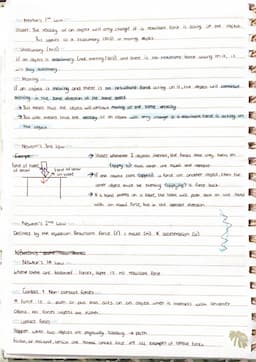 Newton's 1st Law
States: The velocity of an object will only change if a resultant force is acting on the object.
This applies to a stationary (still) or moving object.
Stationary (still)
If an object is stationary (not moving/still) and there is no resultant force acting on it, it
will stay stationary.
Moving
If an object is moving and there is no resultant force acting on it, the object will continue
moving in the same direction at the same speed
→ This means that the object will continue moving at the same velocity.
→ This also means that the velocity of an object will only change if a resultant force is acting on
the object.
Newton's 3rd Law
Example
→ States whenever 2 objects interact, the forces that they exert on
each other are equal and opposite.
→ If one object exerts a force on another object, then the
other object must be exerting a force back.
→ If a hand exerts on a wall, the wall will push back on the hand
with an equal force, but in the opposite direction.
Newton's 2nd Law
Defined by the equation: Resultant force (F) = mass (m) X acceleration (a)
Newton's 1st Law
Where there are balanced forces, there is no resultant force
Contact & Non contact forces
A force is a push or pull that acts on an object when it interacts with another
object. All forces objects are either:
Contact forces
Happen when two objects are physically touching →
friction, air resistance, tension and normal contact force are all examples of contact forces.